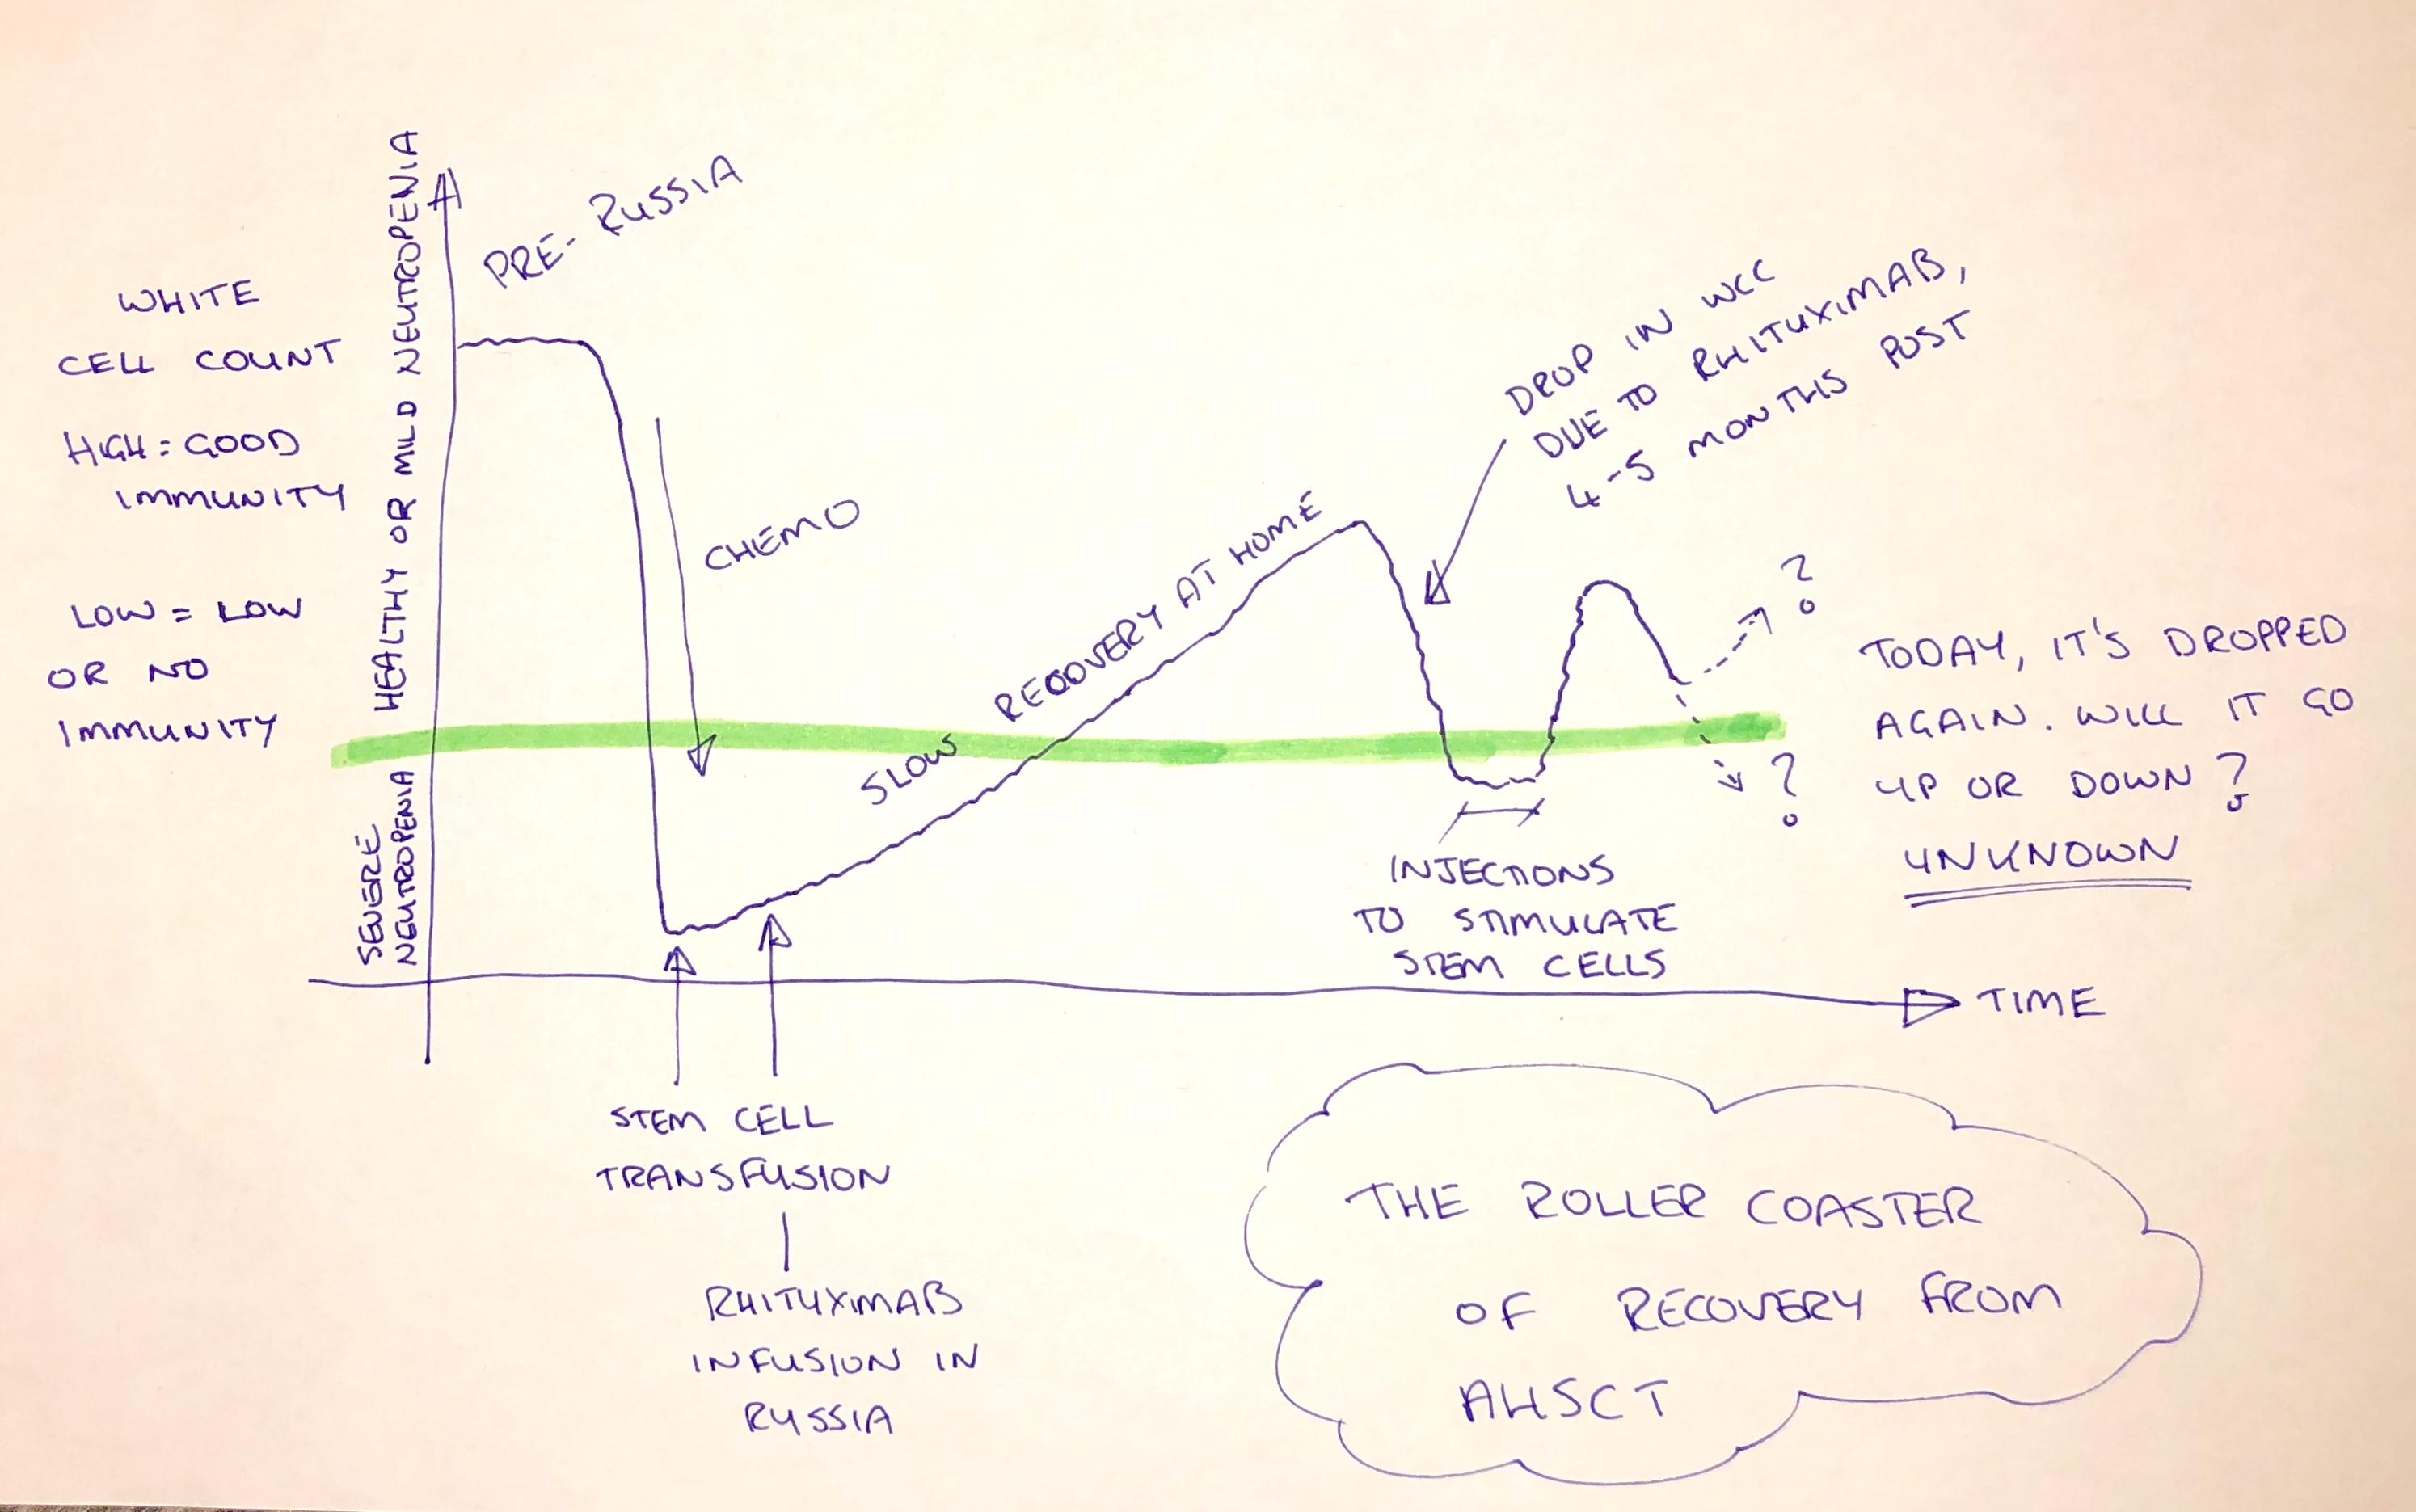 WHITE
CELL COUNT
HIGH = GOOD
IMMUNITY
LOW = LOW
OR NO
IMMUNITY
HEALTHY OR MILD NEUTROPENIA
SEVERE
NEUTROPENIA
PRE-RUSSIA
CHEMO
SLOW RECOVERY AT HOME
DROP IN WCC
DUE TO RHITUXIMAB,
4-5 MONTHS POST
?
?
TODAY, IT'S DROPPED
AGAIN. WILL IT GO
UP OR DOWN?
UNKNOWN
INJECTIONS
TO STIMULATE
STEM CELLS
TIME
STEM CELL
TRANSFUSION
RHITUXIMAB
INFUSION IN
RUSSIA
THE ROLLER COASTER
OF RECOVERY FROM
AHSCT